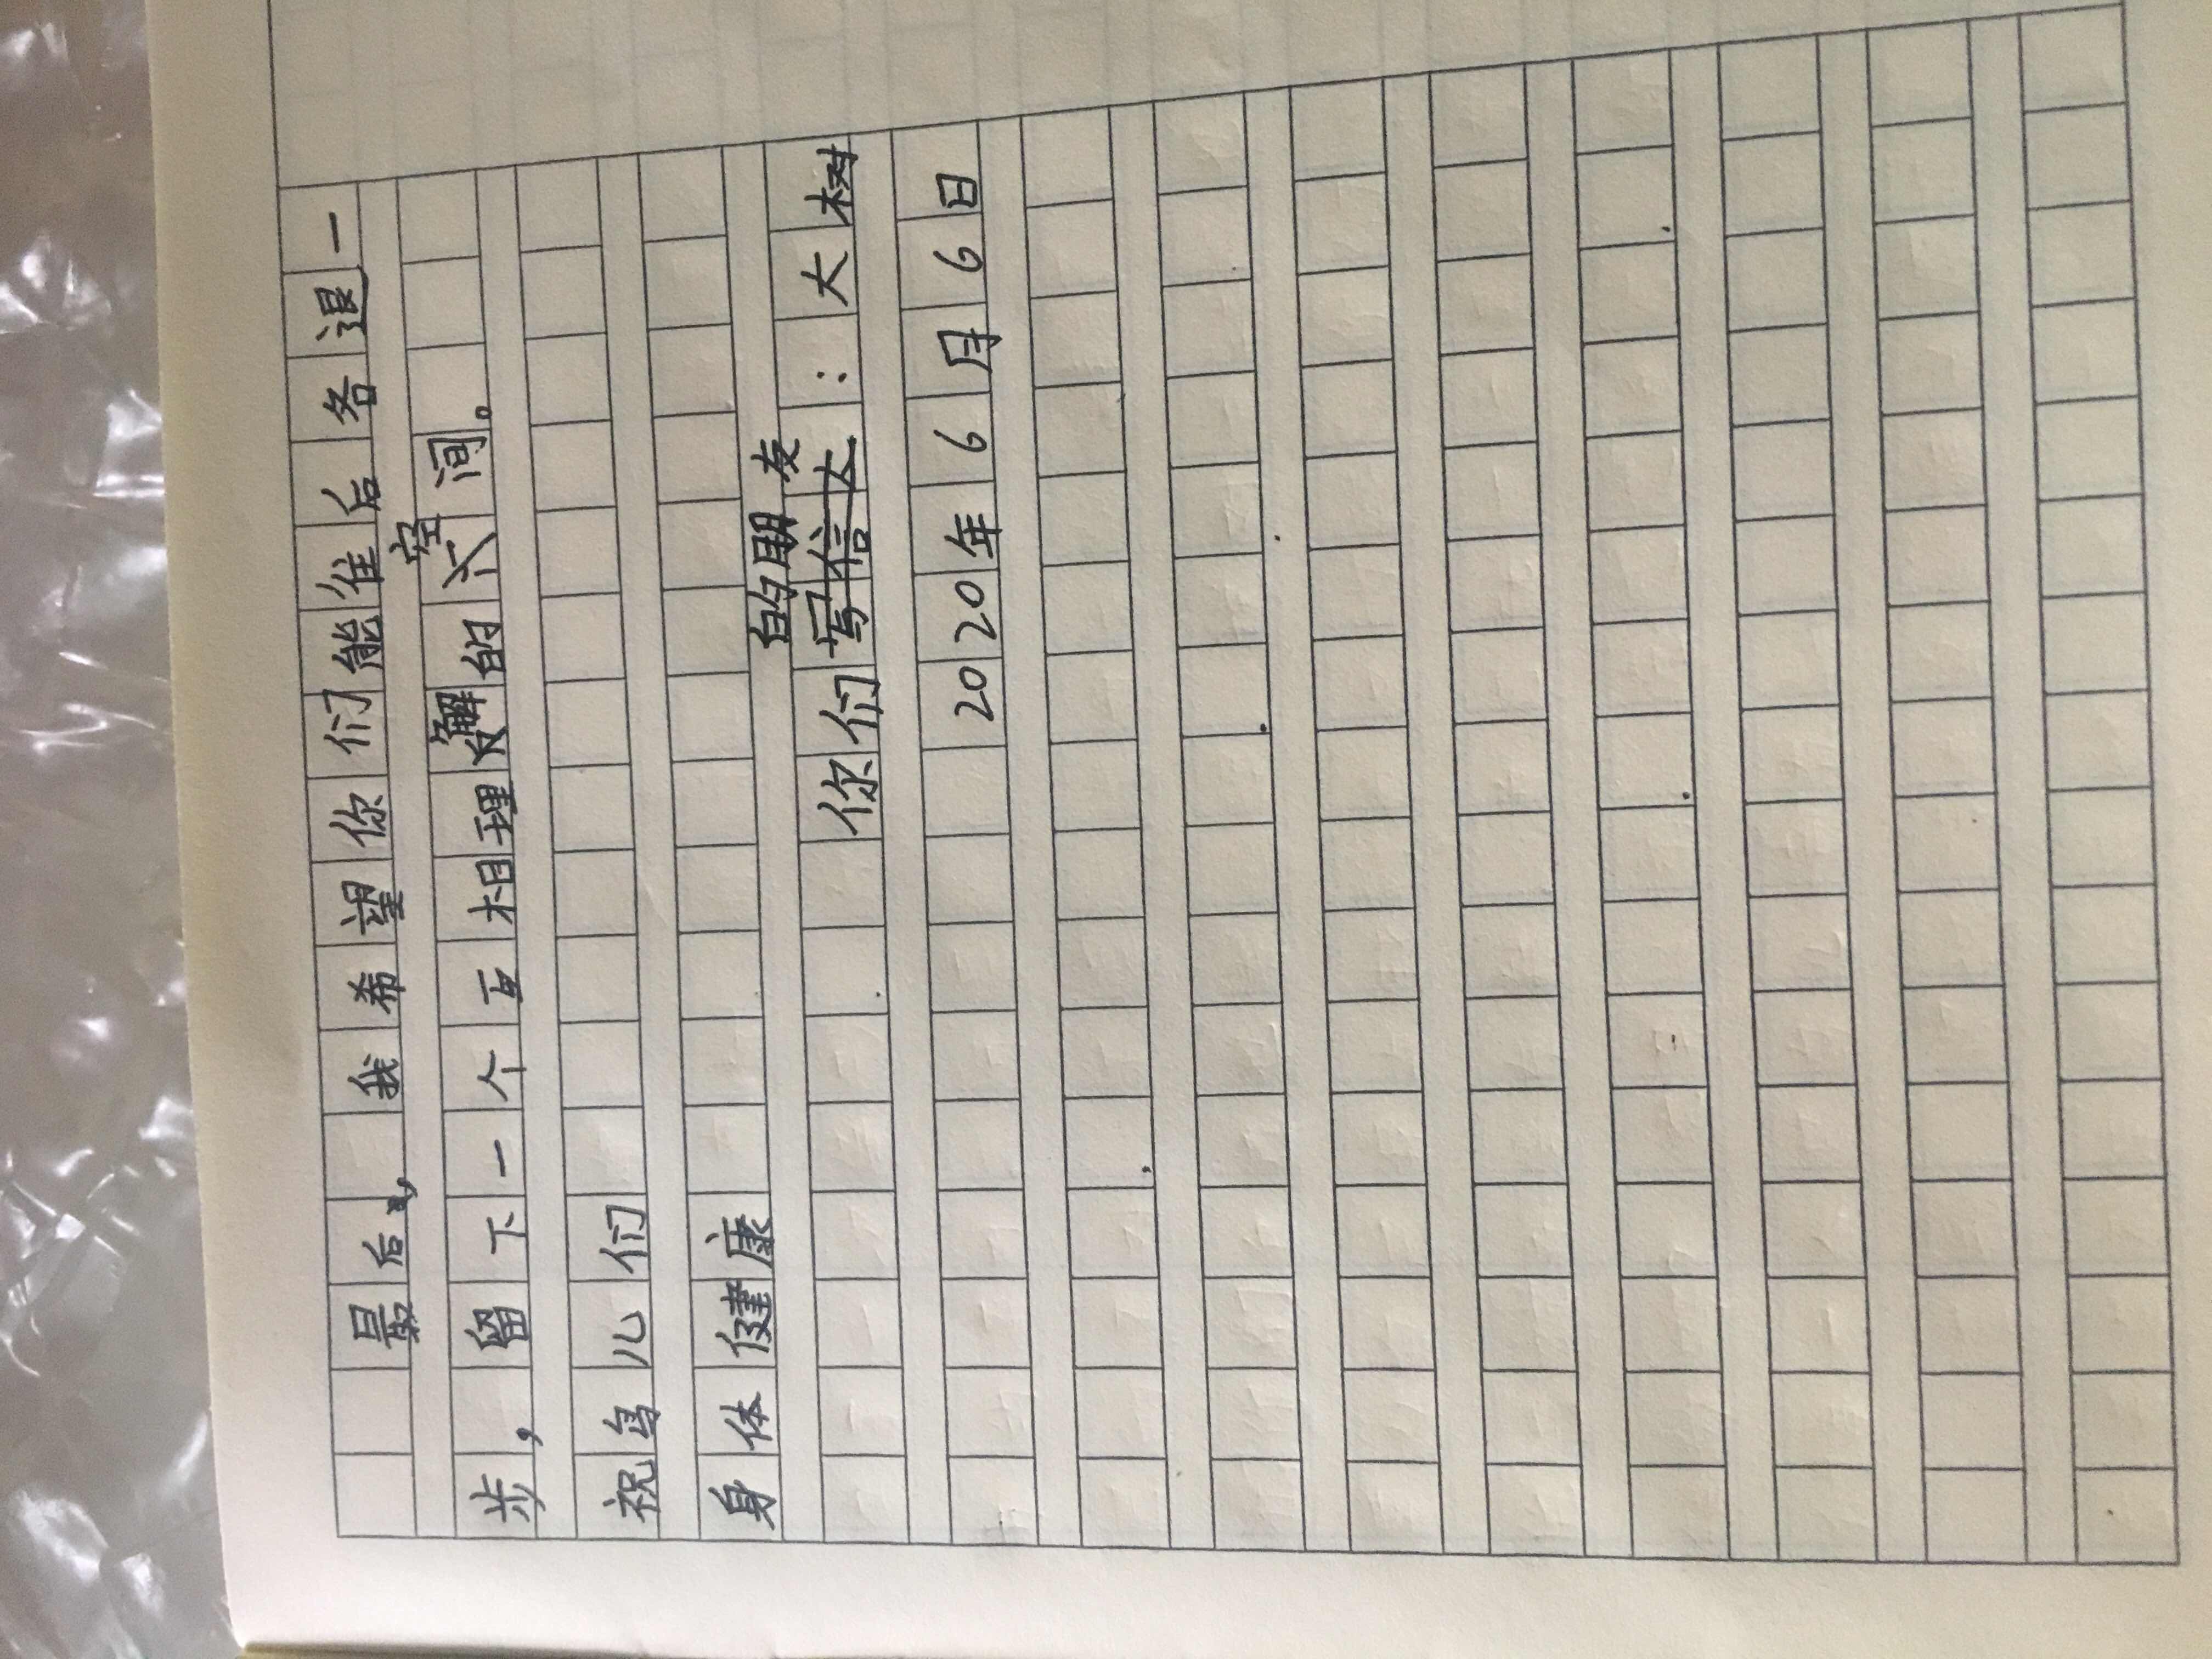 最后，我希望你们能往后各退一
步，留下一个互相理解的空间。
祝鸟儿们
身体健康
你们的朋友：大树
2020年6月6日